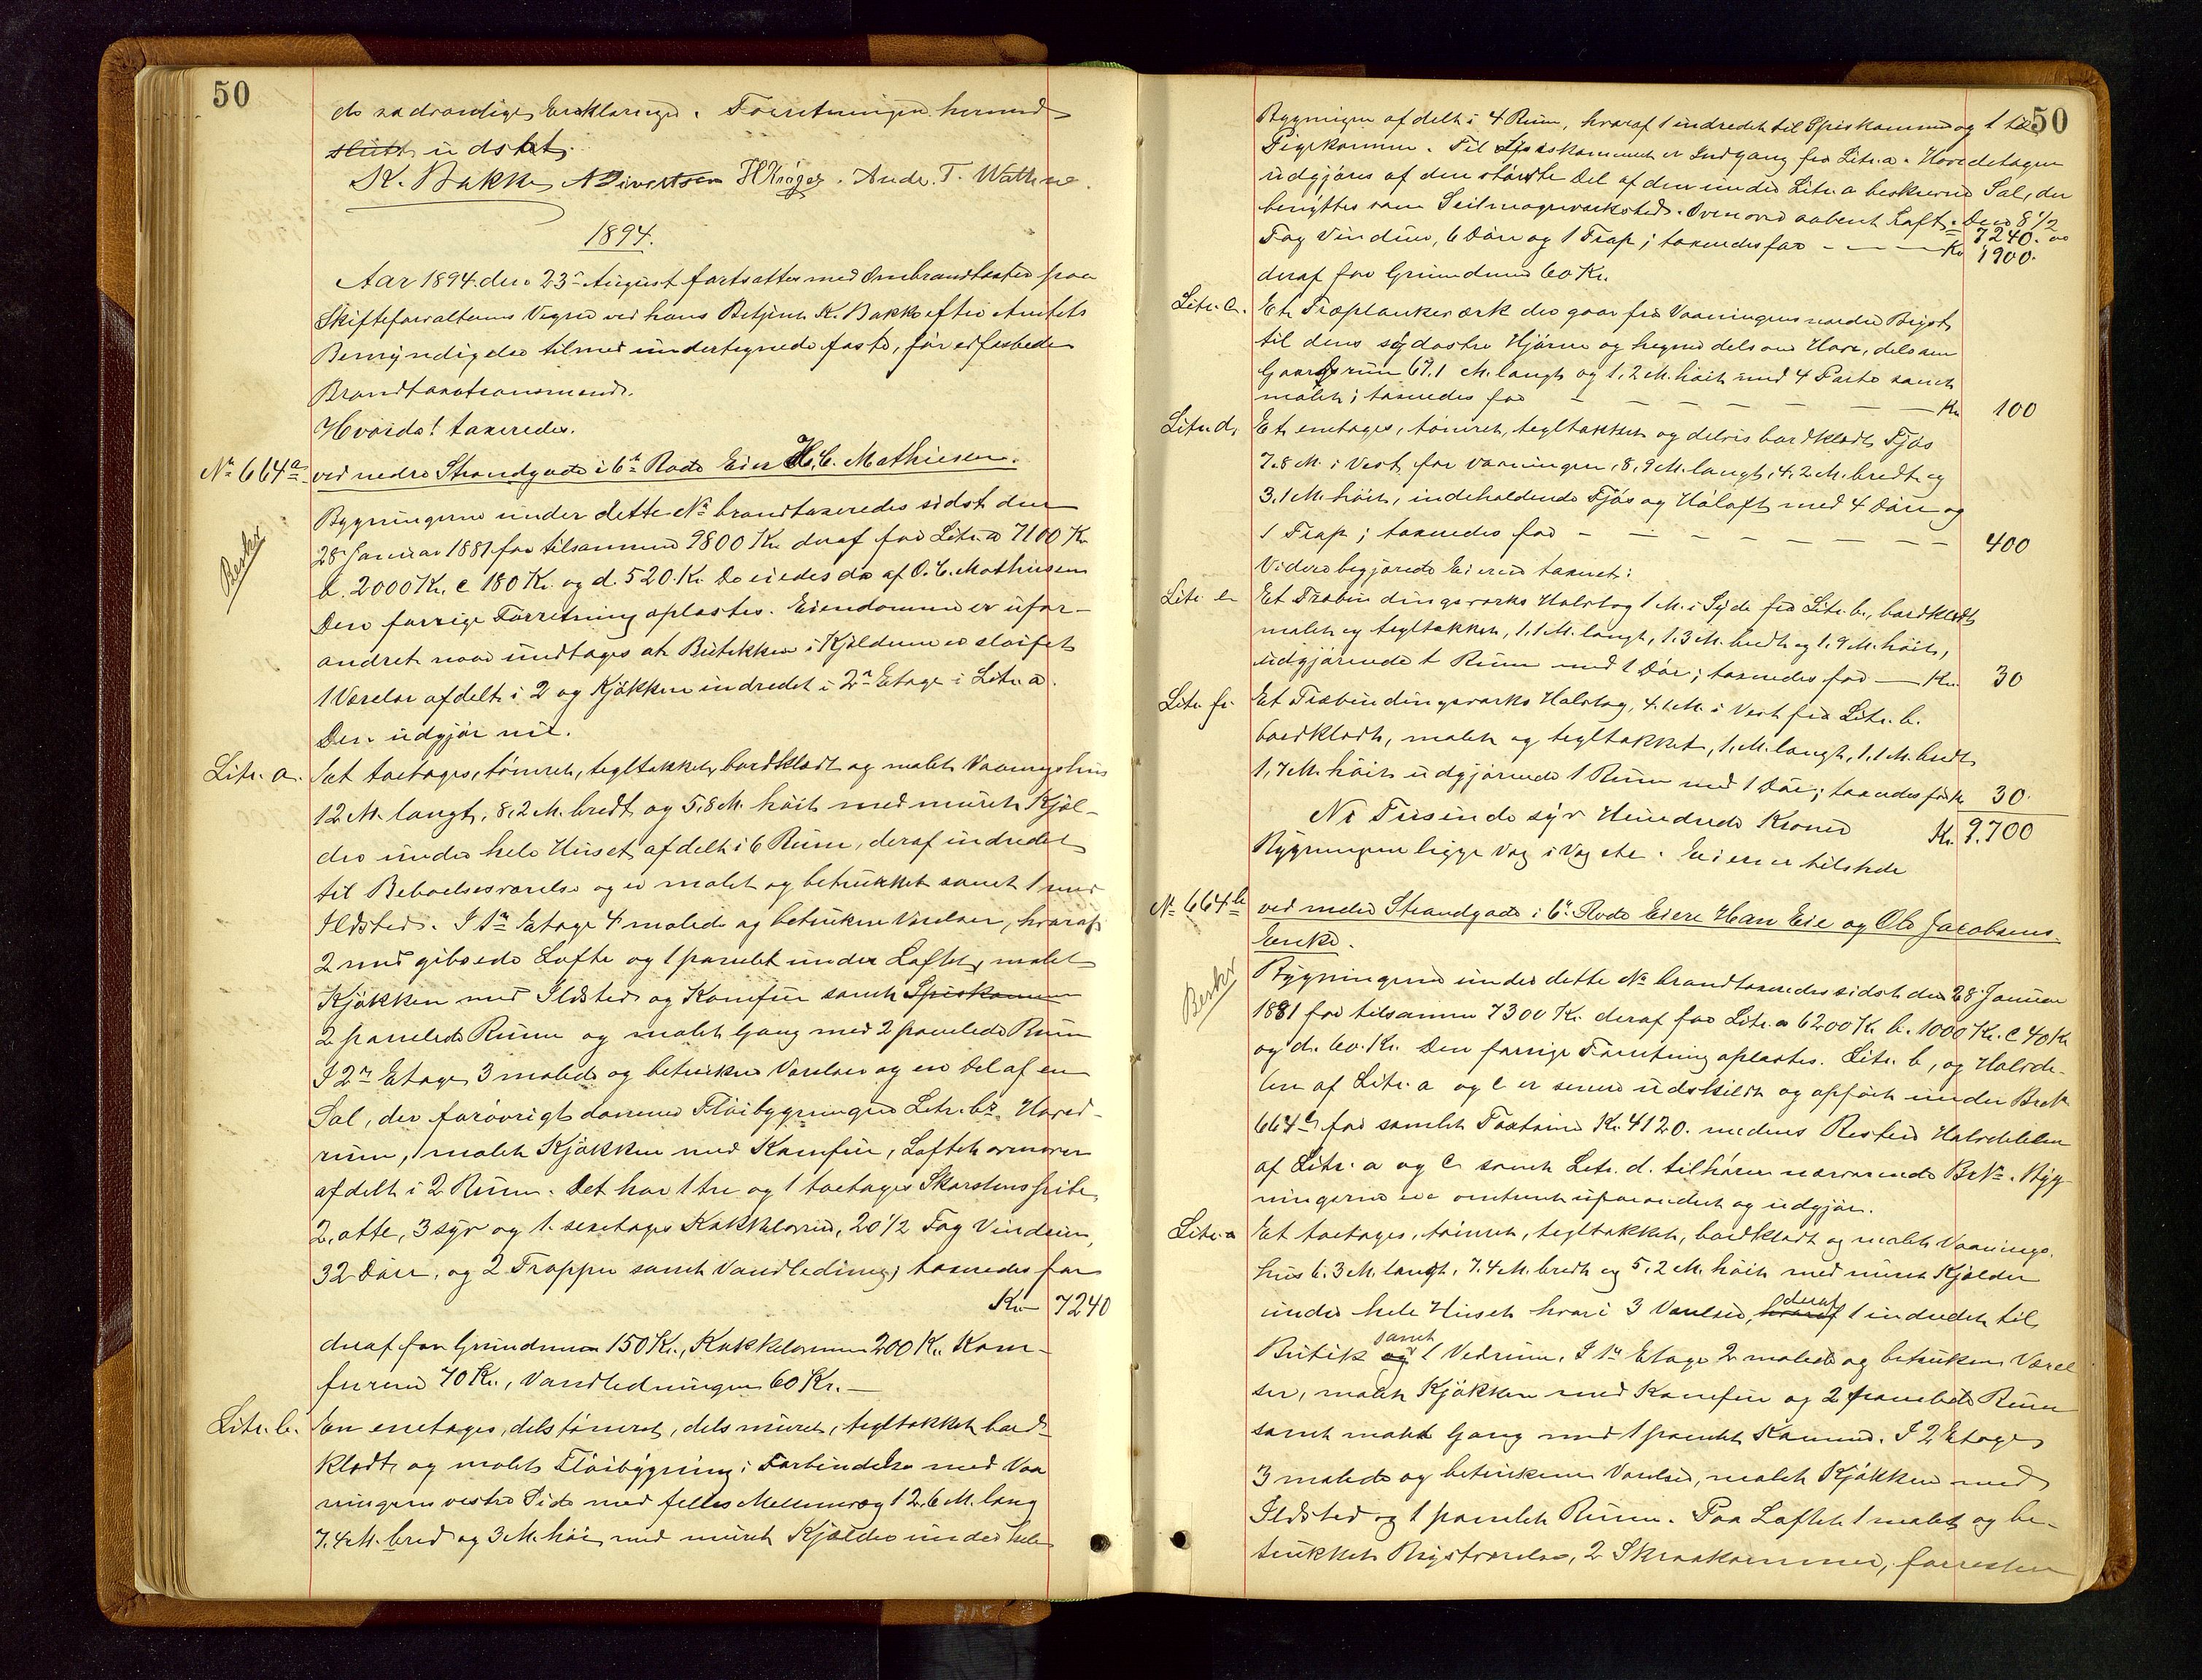 50
de sædvanlige Erklæringer. Forretningen hermed
slutt udstet.
K. Bakke N Sivertsen H Krøger. Andr. T. Wathne.
1894.
Aar 1894 den 23de August fortsattes med Ombrandtaxter paa
Skifteforvalterens Vegne ved hans Betjent K. Bakke efter Amtets
Bemyndigelse tilmed undertegnede faste, før edfæstede
Brandtaxationsmænd.
Hvorda! taxeredes.
No 664a ved nedre Strandgade i 6te Rode Eier H. C. Mathiesen.
Bygningerne under dette No brandtaxeredes sidst den
Besker
28 Januar 1881 for tilsammen 9800 Kr. deraf for Litr. a 7100 Kr
b. 2000 Kr. c 180 Kr. og d. 520 Kr. De eiedes da af O. C. Mathiesen
Den forrige Forretning oplæstes. Eiendommen er ufor-
andret naar undtages at Butikken i Kjælderen er sløifet
1 Værelse afdelt i 2 og Kjøkken indredet i 2n Etage i Litr. a.
Den udgjør nu.
Litr. a. Et toetages, tømret, tegltækket, bordklædt og malet Vaaningshus
12 M. langt, 8,2 M. bredt og 5,8 M. høit med muret Kjæl-
der under hele Huset afdelt i 6 Rum, deraf indredet
til Beboelsesværelse og er malet og betrukket samt 1 med
Ildsted. I 1n Etage 4 malede og betrukne Værelser, hvoraf
2 med gibsede Lofte og 1 panelet under Loftet, malet
Kjøkken med Ildsted og Komfur samt Spiskammer
2 panelede Rum og malet Gang med 2 panelede Rum
I 2n Etage 3 malede og betrukne Værelser og en Del af en
Sal, der forøvrigt danner Fløibygningens Litr. b's Hoved-
rum, malet Kjøkken med Komfur, Loftet ovenover
afdelt i 2 Rum. Det har 1 tre og 1 toetages Skorstenspibe,
2 otte, 3 syv og 1 sexetages Kakkelovne, 20 1/2 Fag Vinduer,
32 Døre, og 2 Trapper samt Vandledning; taxeredes for
Kr 7240
deraf for Grundmur 150 Kr., Kakkelovnene 200 Kr. Kom-
furene 70 Kr., Vandledningen 60 Kr. —
Litr. b. En enetages, dels tømret, dels muret, tegltækket bord-
klædt og malet Fløibygning i Forbindelse med Vaa
ningens vestre Side med fælles Mellemvæg 12.6 M. lang
7.4 M. bred og 3 M. høi med muret Kjælder under hele
50
Bygningen afdelt i 4 Rum, hvoraf 1 indredet til Spiskammer og 1 til
Pigekammer. Til Spiskammeret er Indgang fra Litr. a. Hovedetagen
udgjøres af den største Del af den under Litr. a beskrevne Sal, der
benyttes som Seilmagerværksted. Ovenover aabent Loft. Den 8 1/2
Fag Vinduer, 6 Døre og 1 Trap; taxeredes for - - - Kr 7,240. 1900.
deraf for Grundmur 60 Kr.
Litr. c. Et Træplankeværk der gaar fra Vaaningens nordre Bygst
til dens sydøstre Hjørne og hegner dels om Have, dels om
Gaardsrum 67.1 M. langt og 1,2 M. høit med 4 Porte samt
malet; taxeredes for - - - - - - - Kr 100
Litr. d. Et enetages, tømret, tegltækket og delvis bordklædt Fjøs
7.8 M. i Vest for Vaaningen, 8,9 M. langt, 4,2 M. bredt og
3.1 M. høit, indeholdende Fjøs og Høloft med 4 Døre og
1 Trap; taxeredes for - - - - - - - 400
Videre begjærede Eieren taxeret:
Litr e Et Træbindingsværks Halvtag 1 M. i Syd fra Litr. b., bordklædt
malet og tegltækket, 1,1 M. langt, 1.3 M. bredt og 1.9 M. høit,
udgjørende 1 Rum med 1 Dør; taxeredes for — Kr. 30
Litr. f. Et Træbindingsværks Halvtag, 4.1 M. i Vest fra Litr. b.
bordklædt, malet og tegltækket, 1, M. langt, 1.1 M. bredt
1,7 M. høit udgjørende 1 Rum med 1 Dør; taxeredes for Kr 30.
Ni Tusinde syv Hundrede Kroner Kr. 9.700
Bygningerne ligge Væg i Væg etc. Eieren er tilstede
No 664b ved nedre Strandgade i 6te Rode Eiere Hans Eie og Ole Jacobsens
Enke.
Besker
Bygningerne under dette No brandtaxeredes sidst den 28 Januar
1881 for tilsammen 7300 Kr. deraf for Litr. a 6200 Kr. b. 1000 Kr. c 40 Kr
og d. 60. Kr. Den forrige Forretning oplæstes. Litr. b, og Halvde-
len af Litr. a og c er senere udskildt og opført under BrNo
664c for samlet Taxtsum Kr. 4120. medens Resten Halvdelen
af Litr. a og c samt Litr. d. tilhører nærværende BrNo. Byg-
ningerne ere omtrent uforandret og udgjør.
Litr. a Et toetages, tømret, tegltækket, bordklædt og malet Vaanings-
hus 6.3 M. langt, 7.4 M. bredt og 5,2 M. høit med muret Kjælder
under hele Huset hvori 3 Værelser, hvoraf deraf 1 indredet til
Butik og samt 1 Vedrum. I 1n Etage 2 malede og betrukne Værel
ser, malet Kjøkken med Komfur og 2 panelede Rum
samt malet Gang med 1 panelet Kammer. I 2 Etage
3 malede og betrukne Værelser, malet Kjøkken med
Ildsted og 1 panelet Rum. Paa Loftet 1 malet og be-
trukket Kvistværelse, 2 Skraakammere, forresten